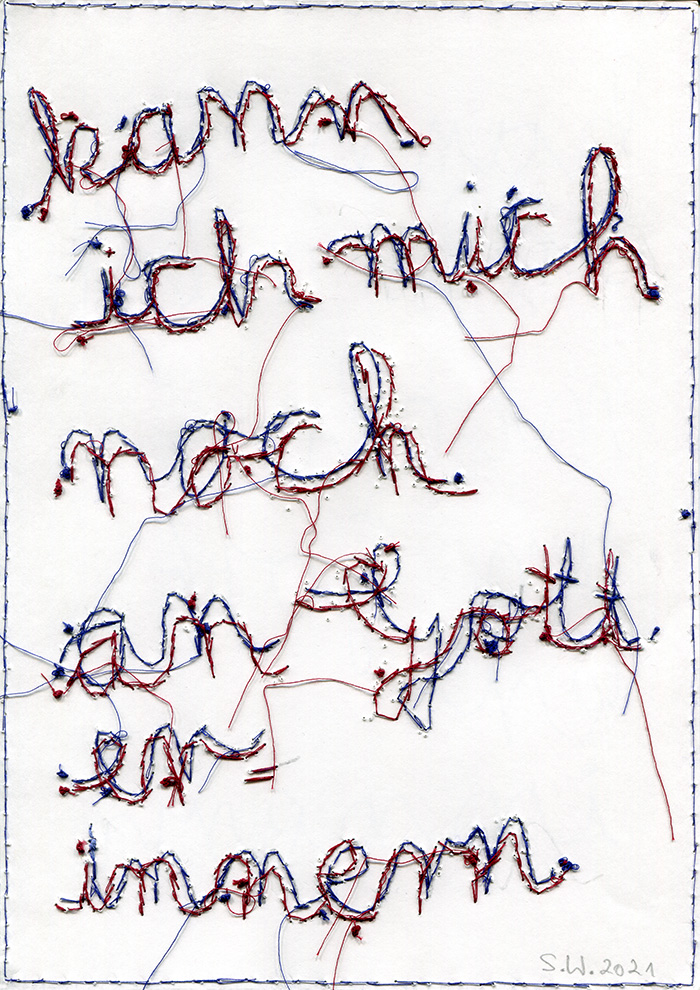 kann
ich mich
noch
an Gott
er=
innern
S.W. 2021